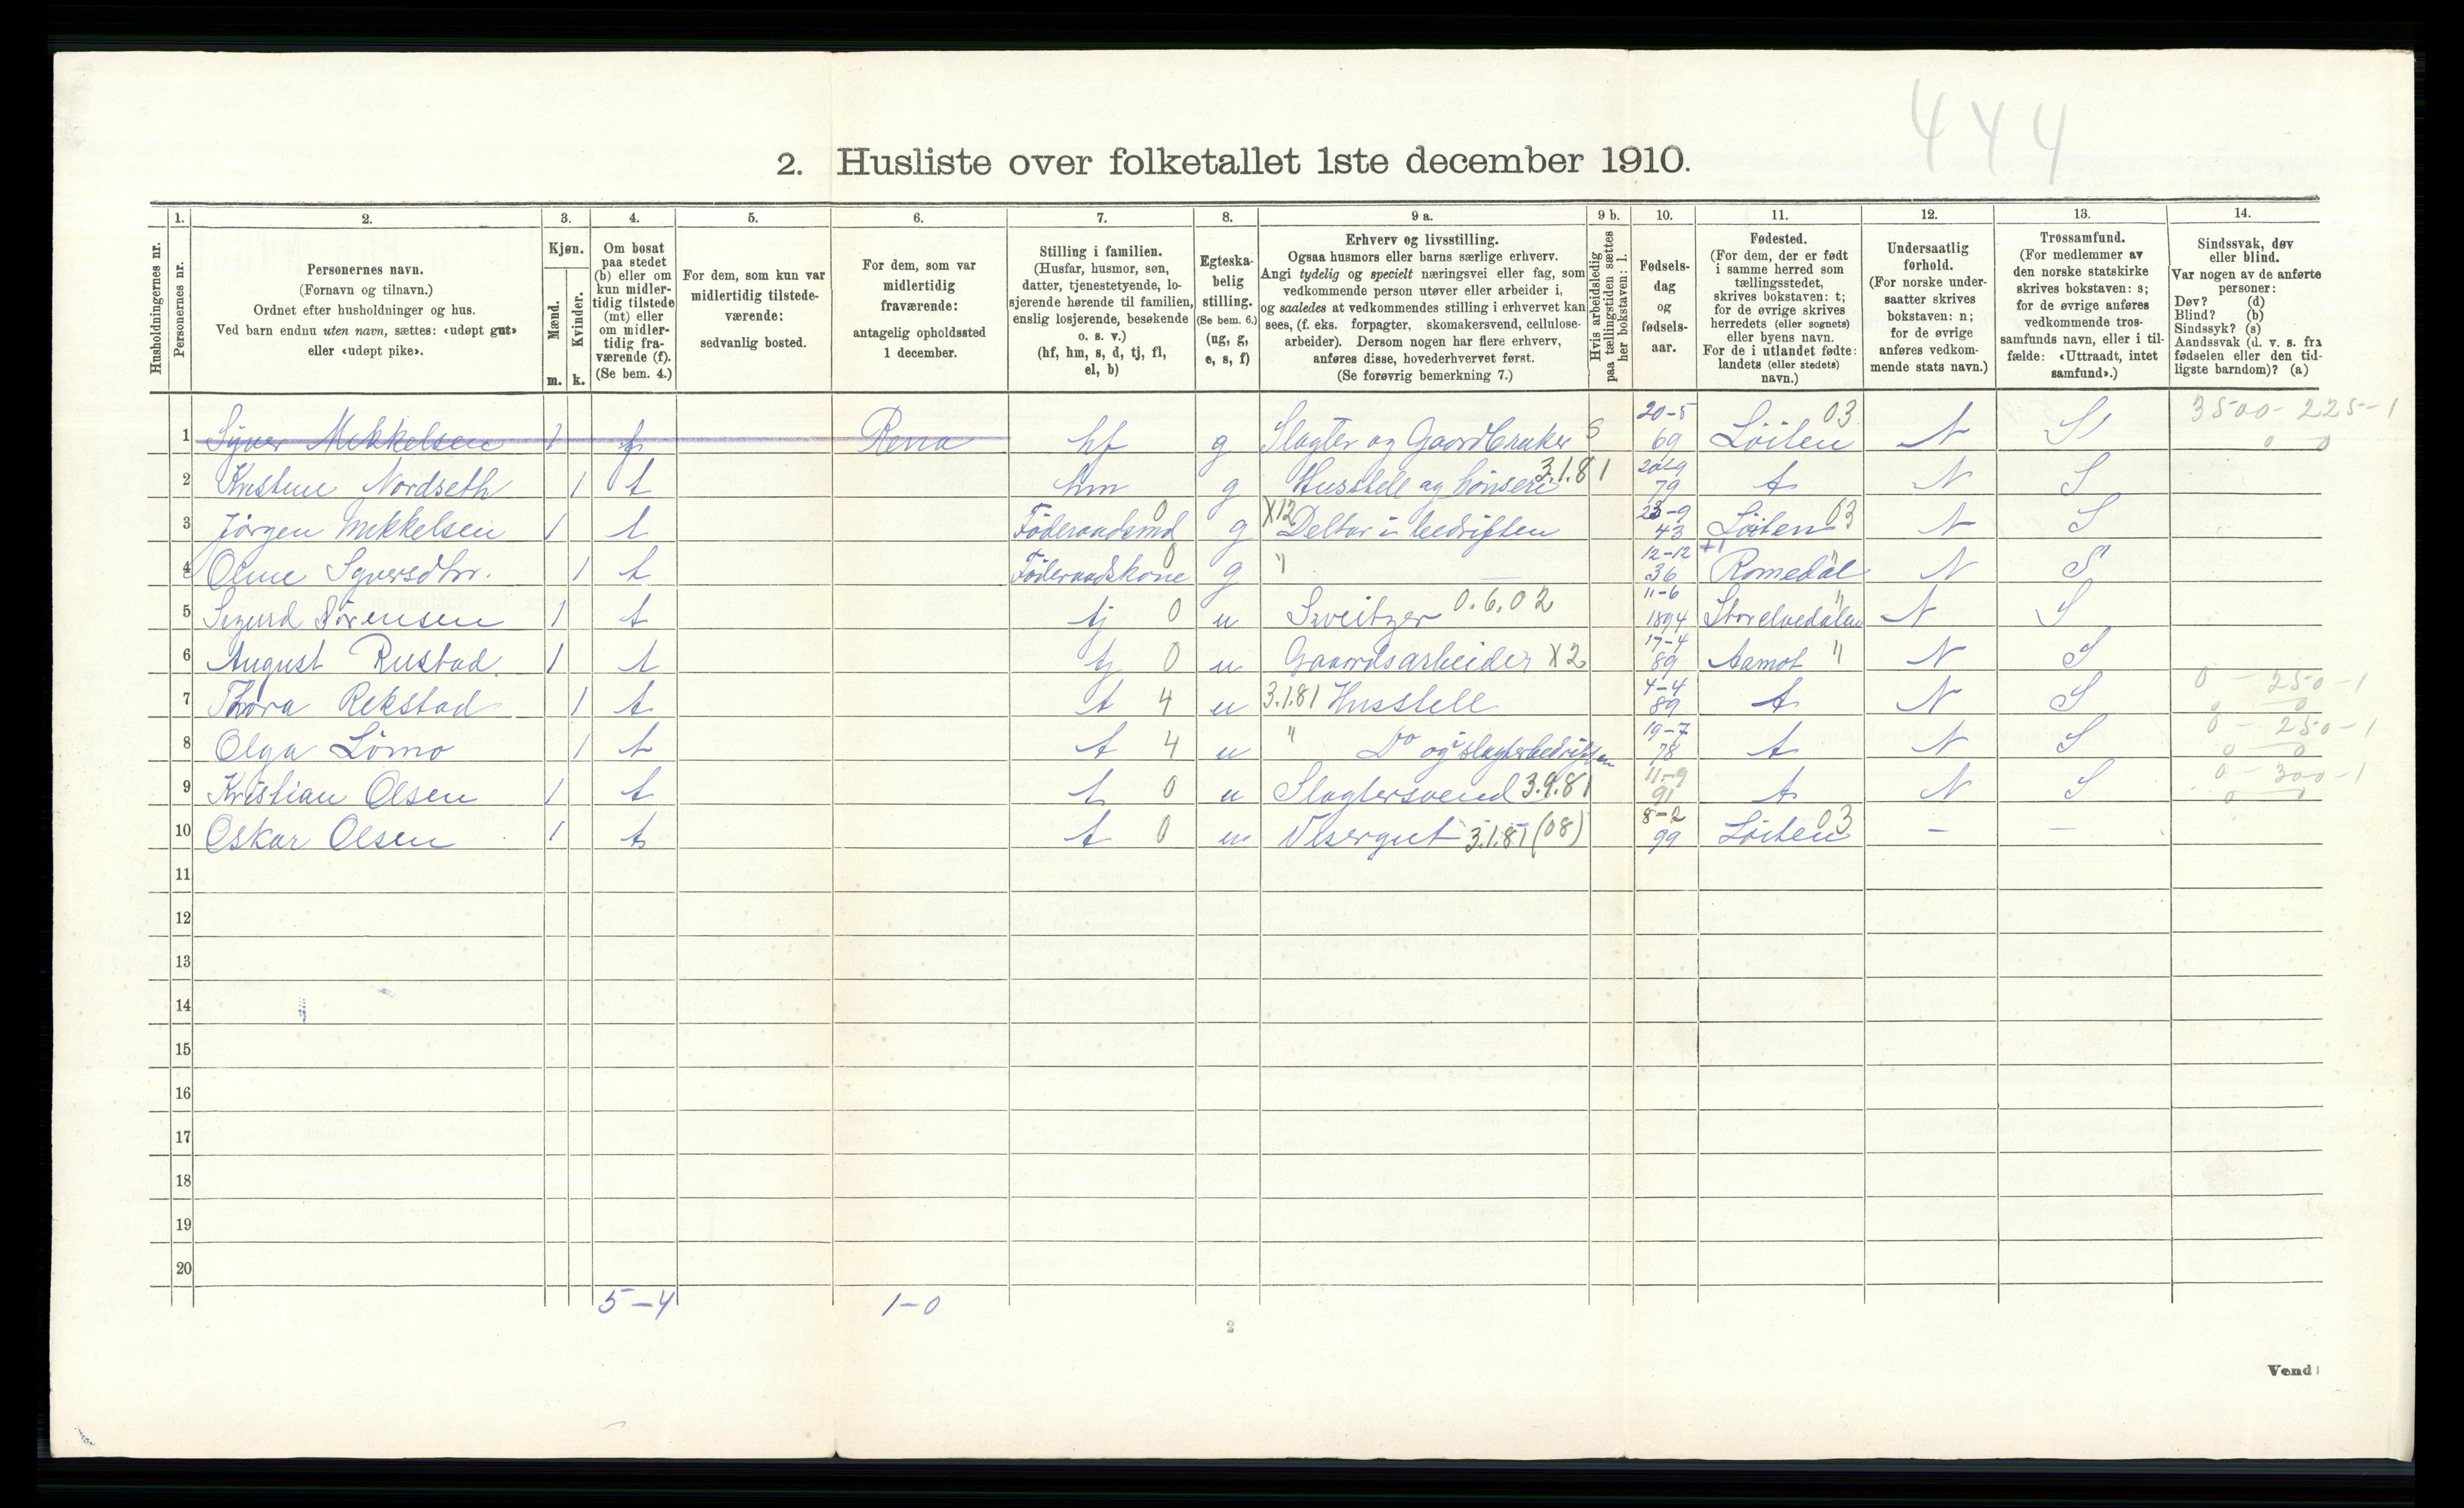 444
2. Husliste over folketallet 1ste december 1910.
Husholdningernes nr.
1.
Personernes nr.
2.
Personernes navn.
(Fornavn og tilnavn.)
Ordnet efter husholdninger og hus.
Ved barn endnu uten navn, sættes: «udøpt gut»
eller «udøpt pike».
3.
Kjøn.
Mænd.
Kvinder.
m. k.
4.
Om bosat
paa stedet
(b) eller om
kun midler-
tidig tilstede
(mt) eller
om midler-
tidig fra-
værende (f).
(Se bem. 4.)
5.
For dem, som kun var
midlertidig tilstede-
værende:
sedvanlig bosted.
6.
For dem, som var
midlertidig
fraværende:
antagelig opholdssted
1 december.
7.
Stilling i familien.
(Husfar, husmor, søn,
datter, tjenestetyende, lo-
sjerende hørende til familien,
enslig losjerende, besøkende
o. s. v.)
(hf, hm, s, d, tj, fl,
el, b)
8.
Egteska-
belig
stilling.
(Se bem. 6.)
(ug, g,
e, s, f)
9 a.
Erhverv og livsstilling.
Ogsaa husmors eller barns særlige erhverv.
Angi tydelig og specielt næringsvei eller fag, som
vedkommende person utøver eller arbeider i,
og saaledes at vedkommendes stilling i erhvervet kan
sees, (f. eks. forpagter, skomakersvend, cellulose-
arbeider). Dersom nogen har flere erhverv,
anføres disse, hovederhvervet først.
(Se forøvrig bemerkning 7.)
9 b.
Hvis arbeidsledig
paa tællingstiden sættes
her bokstaven: l.
10.
Fødsels-
dag
og
fødsels-
aar.
11.
Fødested.
(For dem, der er født
i samme herred som
tællingsstedet,
skrives bokstaven: t;
for de øvrige skrives
herredets (eller sognets)
eller byens navn.
For de i utlandet fødte:
landets (eller stedets)
navn.)
12.
Undersaatlig
forhold.
(For norske under-
saatter skrives
bokstaven: n;
for de øvrige
anføres vedkom-
mende stats navn.)
13.
Trossamfund.
(For medlemmer av
den norske statskirke
skrives bokstaven: s;
for de øvrige anføres
vedkommende tros-
samfunds navn, eller i til-
fælde: «Uttraadt, intet
samfund».)
14.
Sindssvak, døv
eller blind.
Var nogen av de anførte
personer:
Døv? (d)
Blind? (b)
Sindssyk? (s)
Aandssvak (d. v. s. fra
fødselen eller den tid-
ligste barndom)? (a)
1 Syver Mekkelsen 1 f Rena hf g Slagter og Gaardbruker S 20-5 69 Löiten 03 N S 3500-225-1 0 0
2 Kristine Nordseth 1 t hm g Husstell og hönseri 3.1.81 20-9 79 t N S
3 Jörgen Mekkelsen 1 t Föderaadsmd 0 g X12 Deltar i bedriften 23-9 43 Löiten 03 N S
4 Oline Syversdtr. 1 t Föderaadskone 0 g " 12-12 36 Romedal " N S
5 Sigurd Sörensen 1 t tj 0 u Sveitzer 0.6.02 11-6 1894 Storelvedalen " N S
6 August Rustad 1 t tj 0 u Gaardsarbeider X2 17-4 89 Aamot " N S
7 Thora Rekstad 1 t t 4 u 3.1.81 Husstell 4-4 89 t N S 0-250-1 0 0
8 Olga Lömo 1 t t 4 u " Do og i slagterbedriften 19-7 78 t N S 0-250-1 0 0
9 Kristian Olsen 1 t t 0 u Slagtersvend 3.9.81 11-9 91 t N S 0-300-1 0 0
10 Oskar Olsen 1 t t 0 u Visergut 3.1.81 (08) 8-2 99 Löiten 03 - -
11
12
13
14
15
16
17
18
19
20
5-4 1-0
2
Vend